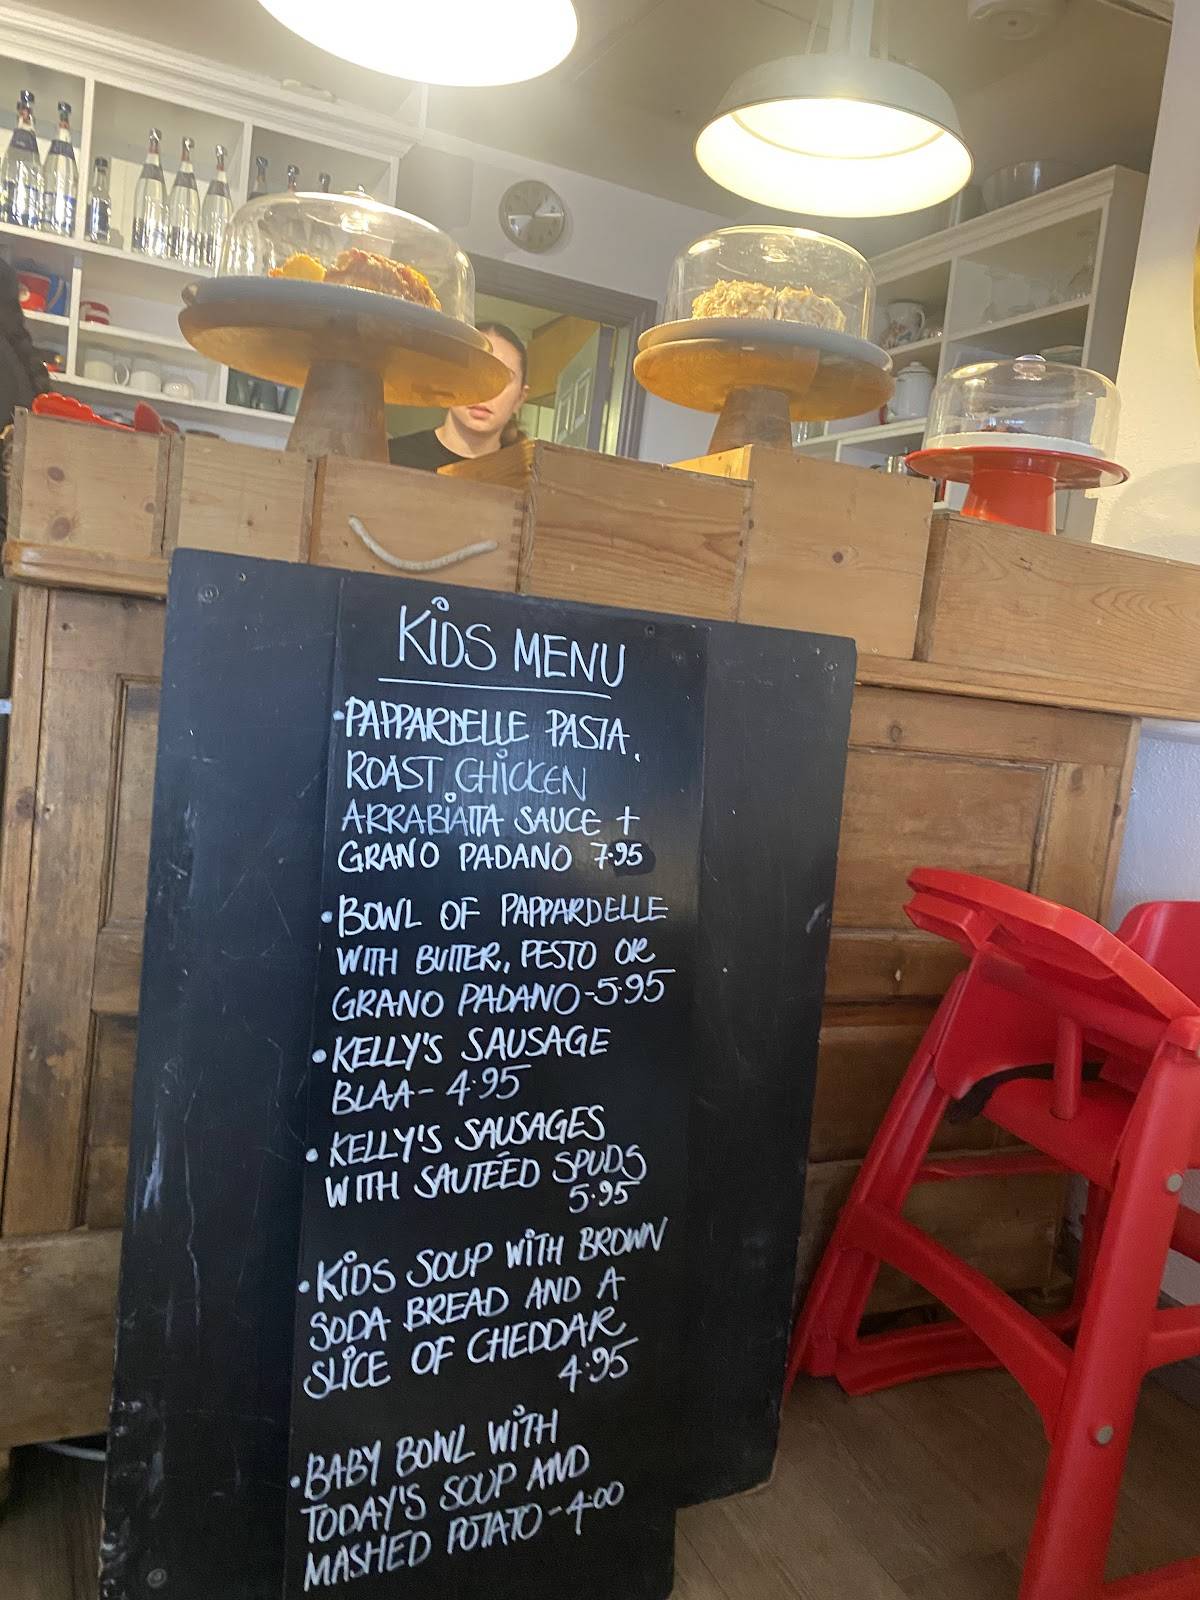 KIDS MENU
• PAPPARDELLE PASTA,
ROAST CHICKEN
ARRABIATTA SAUCE +
GRANO PADANO 7.95
• BOWL OF PAPPARDELLE
WITH BUTTER, PESTO OR
GRANO PADANO - 5.95
• KELLY'S SAUSAGE
BLAA - 4.95
• KELLY'S SAUSAGES
WITH SAUTÉED SPUDS
5.95
• KIDS SOUP WITH BROWN
SODA BREAD AND A
SLICE OF CHEDDAR
4.95
• BABY BOWL WITH
TODAY'S SOUP AND
MASHED POTATO - 4.00